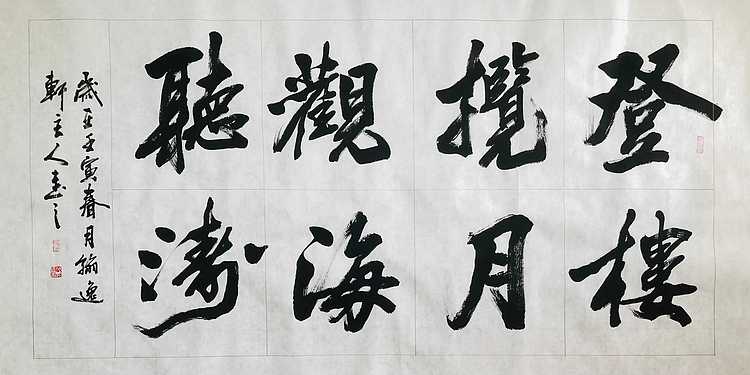 登樓
攬月
觀海
聽濤
歲在壬寅春月翰逸
軒主人書之